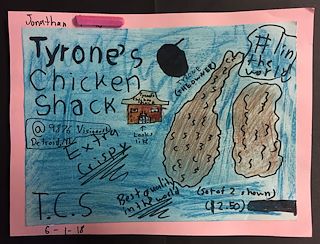 Jonathan
Tyrone's
Chicken
Shack
#1 in
the
world
Extra
Crispy
Looks
like
T.C.S
Best quality
in the world
(Set of 2 shown)
($2.50)
6-1-18